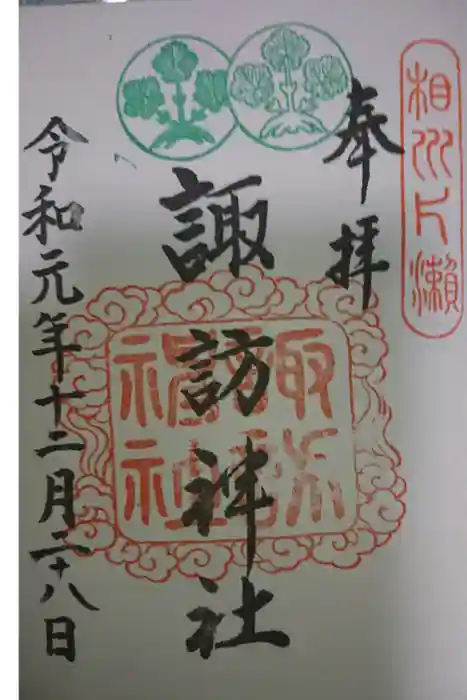 相州片瀬
奉拝
諏訪神社
令和元年十二月二十八日